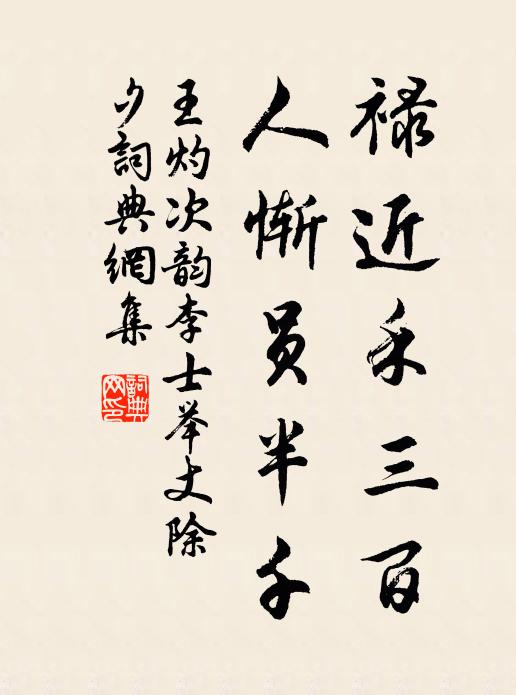 禄近禾三百
人惭员半千
王灼次韵李士举丈除
夕詞典網集
詞典网印